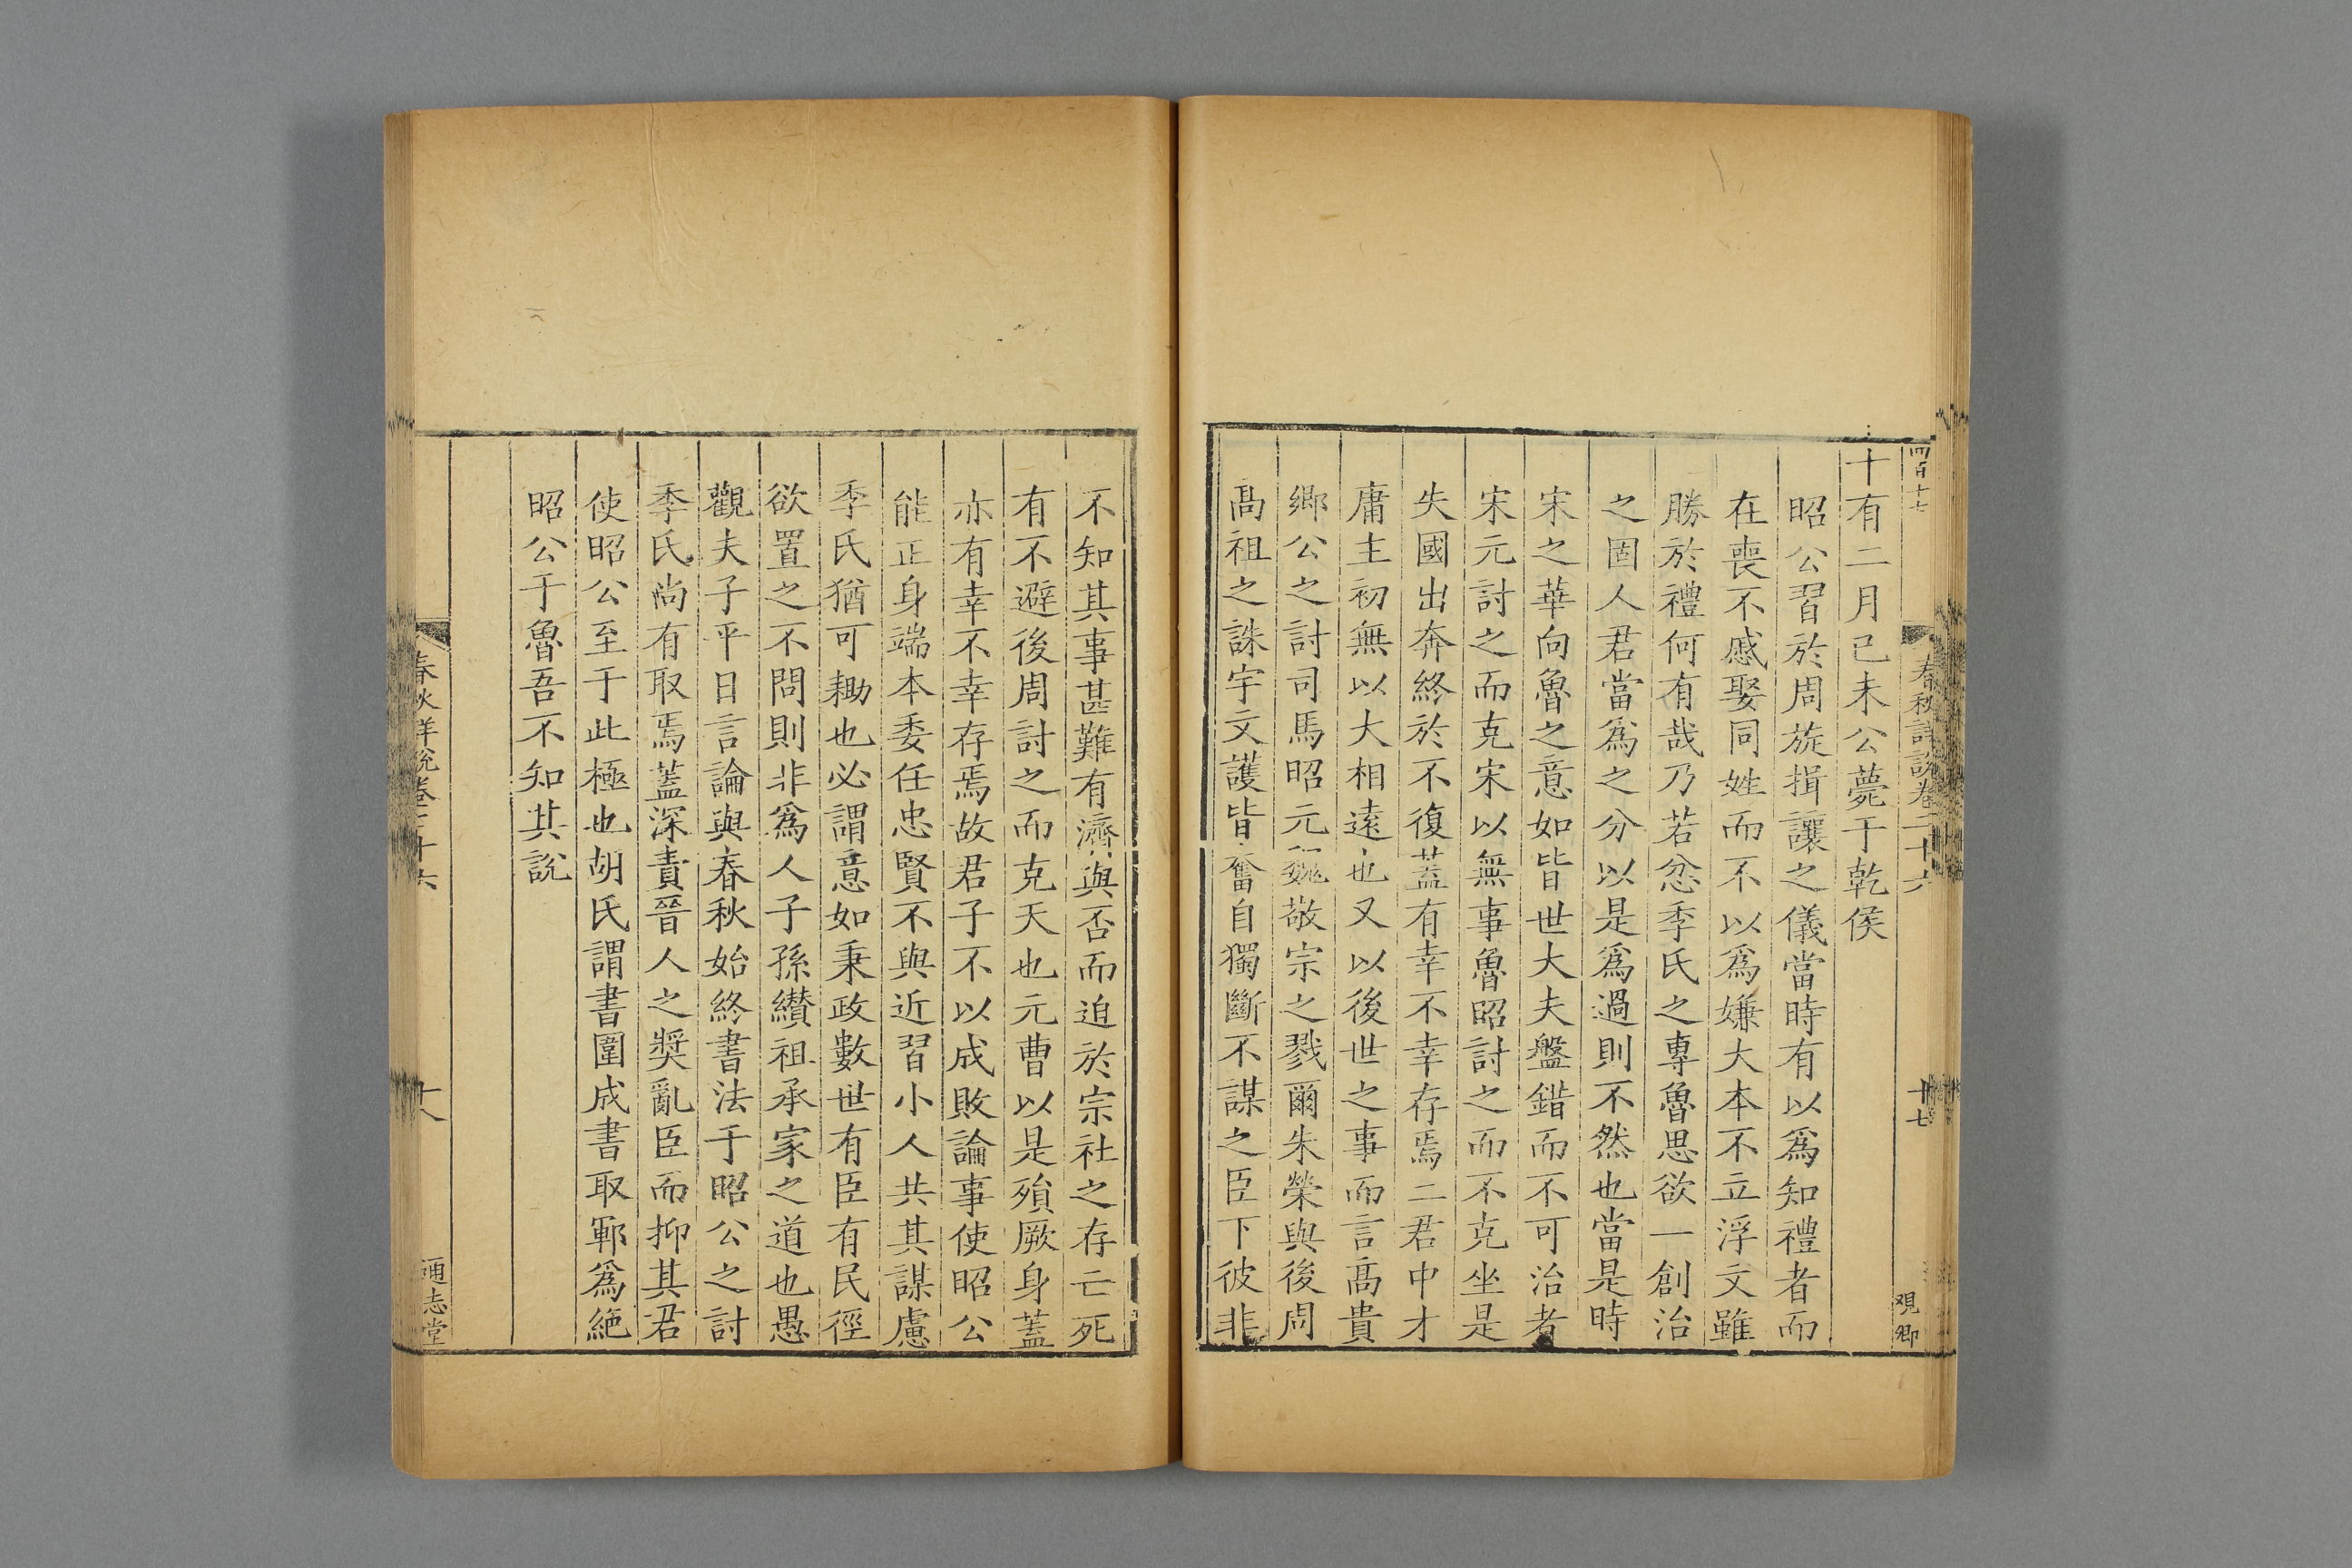 四百十七
春秋詳說卷二十六
十七
十有二月己未公薨于乾侯
昭公習於周旋揖讓之儀當時有以爲知禮者而
在喪不慼娶同姓而不以爲嫌大本不立浮文雖
勝於禮何有哉乃若忿季氏之專魯思欲一創治
之固人君當爲之分以是爲過則不然也當是時
宋之華向魯之意如皆世大夫盤錯而不可治者
宋元討之而克宋以無事魯昭討之而不克坐是
失國出奔終於不復蓋有幸不幸存焉二君中才
庸主初無以大相遠也又以後世之事而言高貴
鄉公之討司馬昭元魏敬宗之戮爾朱榮與後周
高祖之誅宇文護皆奮自獨斷不謀之臣下彼非
不知其事甚難有濟與否而迫於宗社之存亡死
有不避後周討之而克天也元曹以是殞厥身蓋
亦有幸不幸存焉故君子不以成敗論事使昭公
能正身端本委任忠賢不與近習小人共其謀慮
季氏猶可耡也必謂意如秉政數世有臣有民徑
欲置之不問則非爲人子孫纘祖承家之道也愚
觀夫子平日言論與春秋始終書法于昭公之討
季氏尚有取焉蓋深責晉人之獎亂臣而抑其君
使昭公至于此極也胡氏謂書圍成書取鄆爲絕
昭公于魯吾不知其說
春秋詳說卷二十六
十八
通志堂